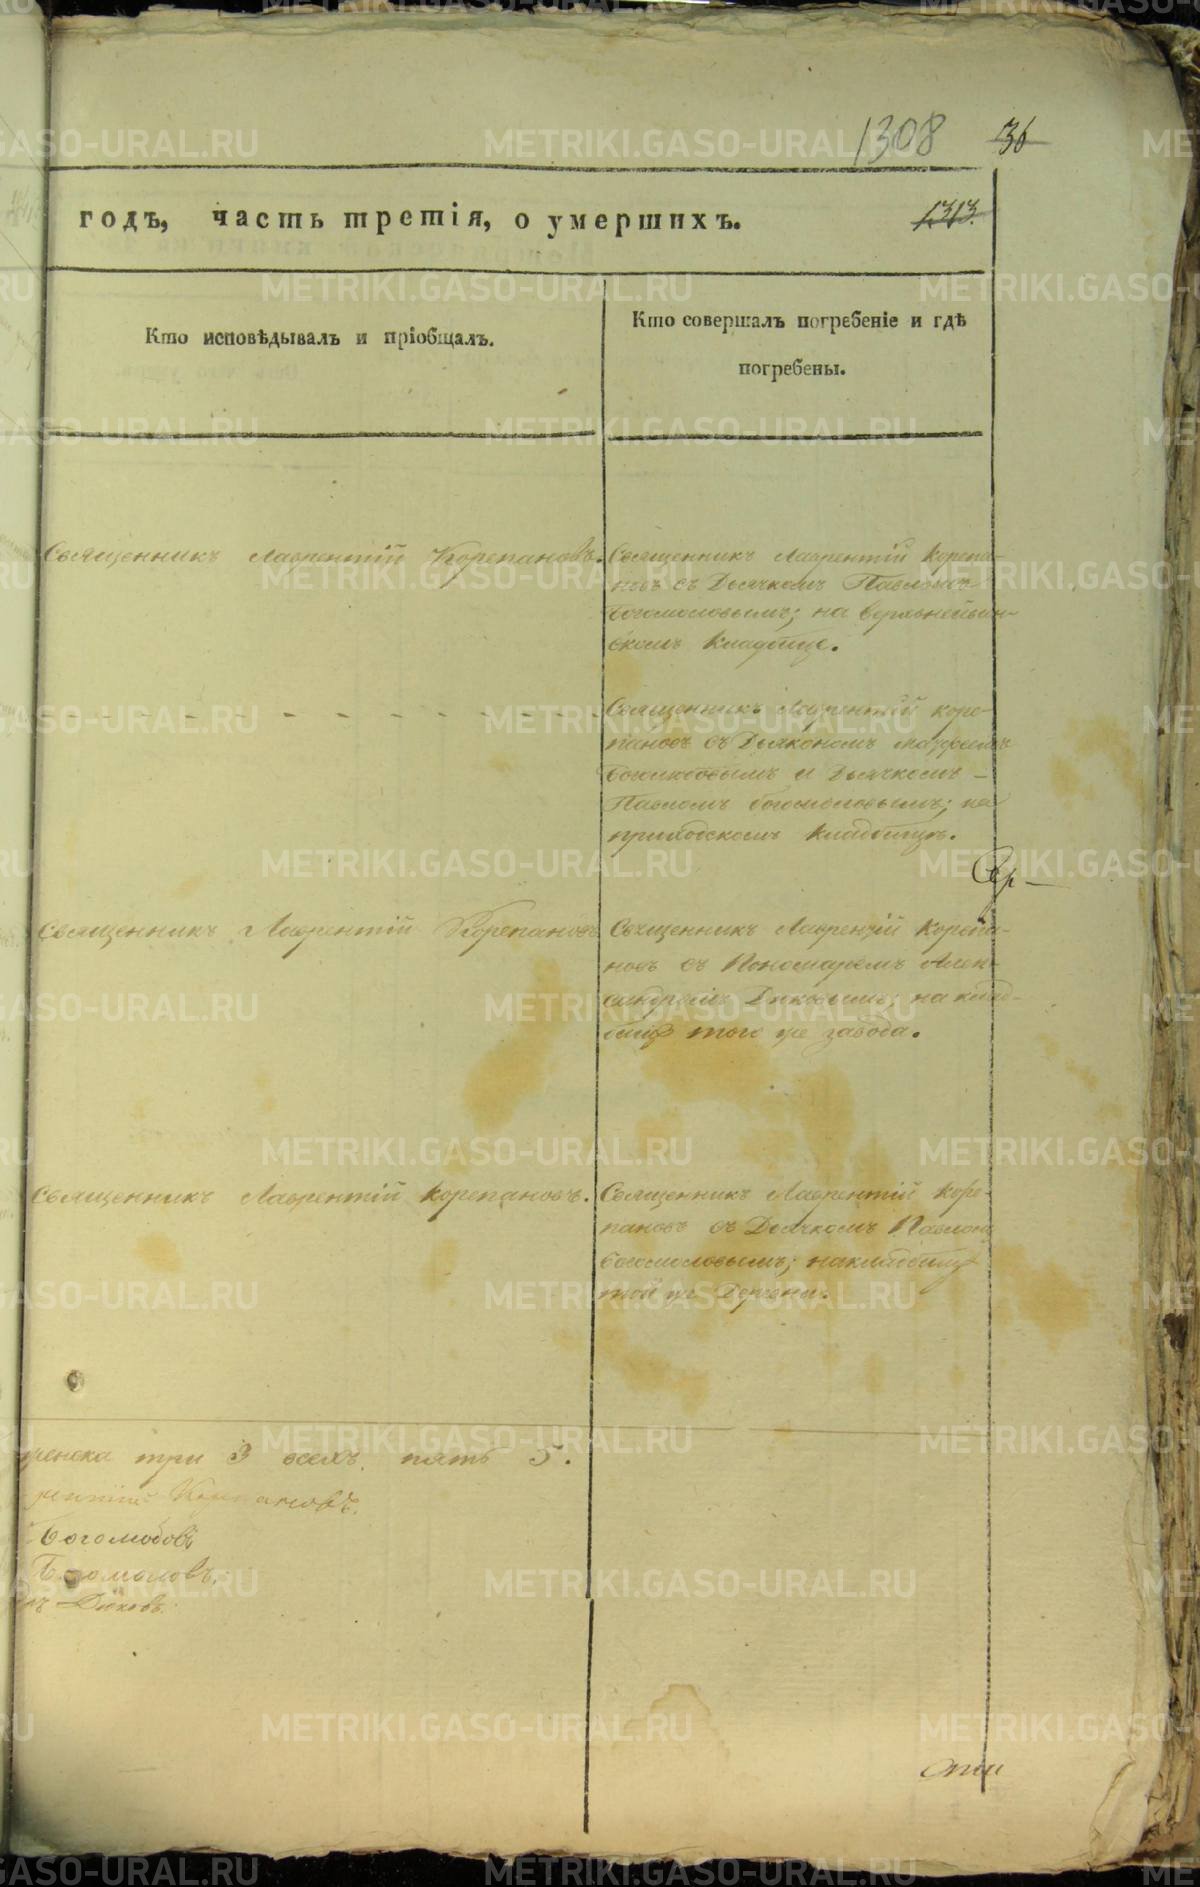 1308 36
годъ, часть третія, о умершихъ. 1313.
Кто исповѣдывалъ и пріобщалъ.
Кто совершалъ погребеніе и гдѣ
погребены.
Священникъ Лаврентій Корепановъ.
Священникъ Лаврентій Корепа-
новъ съ Дьячкомъ Павломъ
Богомоловымъ; на
скомъ кладбище.
Священникъ Лаврентій Коре-
пановъ съ Дьякономъ
Боголюбовымъ и Дьячкомъ
Павломъ Богомоловымъ; на
приходскомъ кладбищѣ.
Священникъ Лаврентій Корепановъ
Священникъ Лаврентій Корепа-
новъ съ Пономаремъ Алек-
сандромъ Диковымъ; на клад-
бищѣ того же завода.
Священникъ Лаврентій Корепановъ.
Священникъ Лаврентій Коре-
пановъ съ Дьячкомъ Павломъ
Богомоловымъ; на кладбищѣ
той же Деревни.
женска три 3 всехъ пять 5.
рентій Корепановъ.
Боголюбовъ
Богомоловъ.
ръ Диковъ.
METRIKI.GASO-URAL.RU